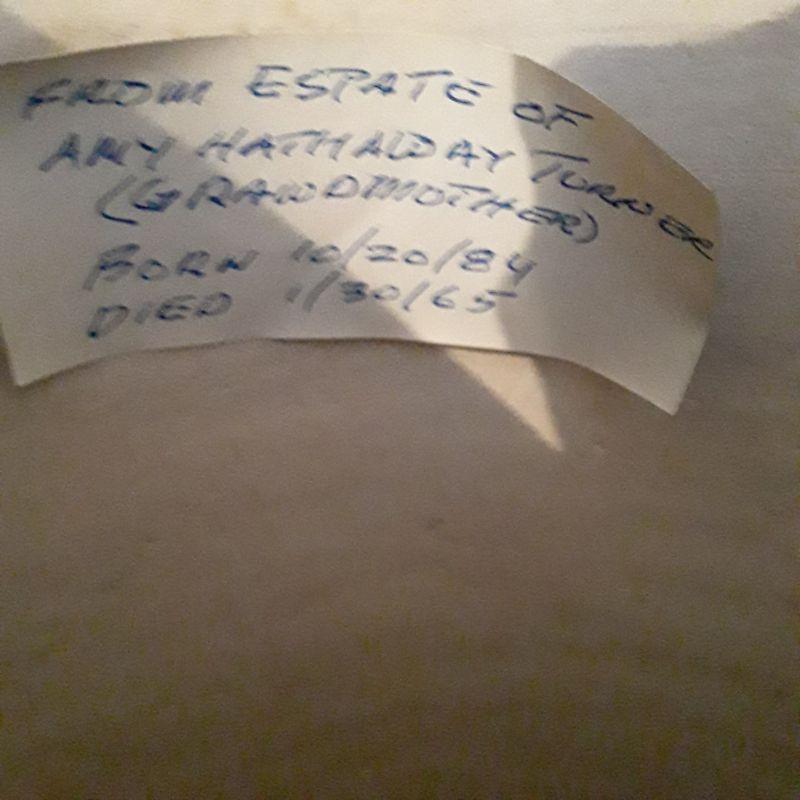 FROM ESTATE OF
AMY HATHAWAY TURNER
(GRANDMOTHER)
BORN 10/20/84
DIED 1/30/65